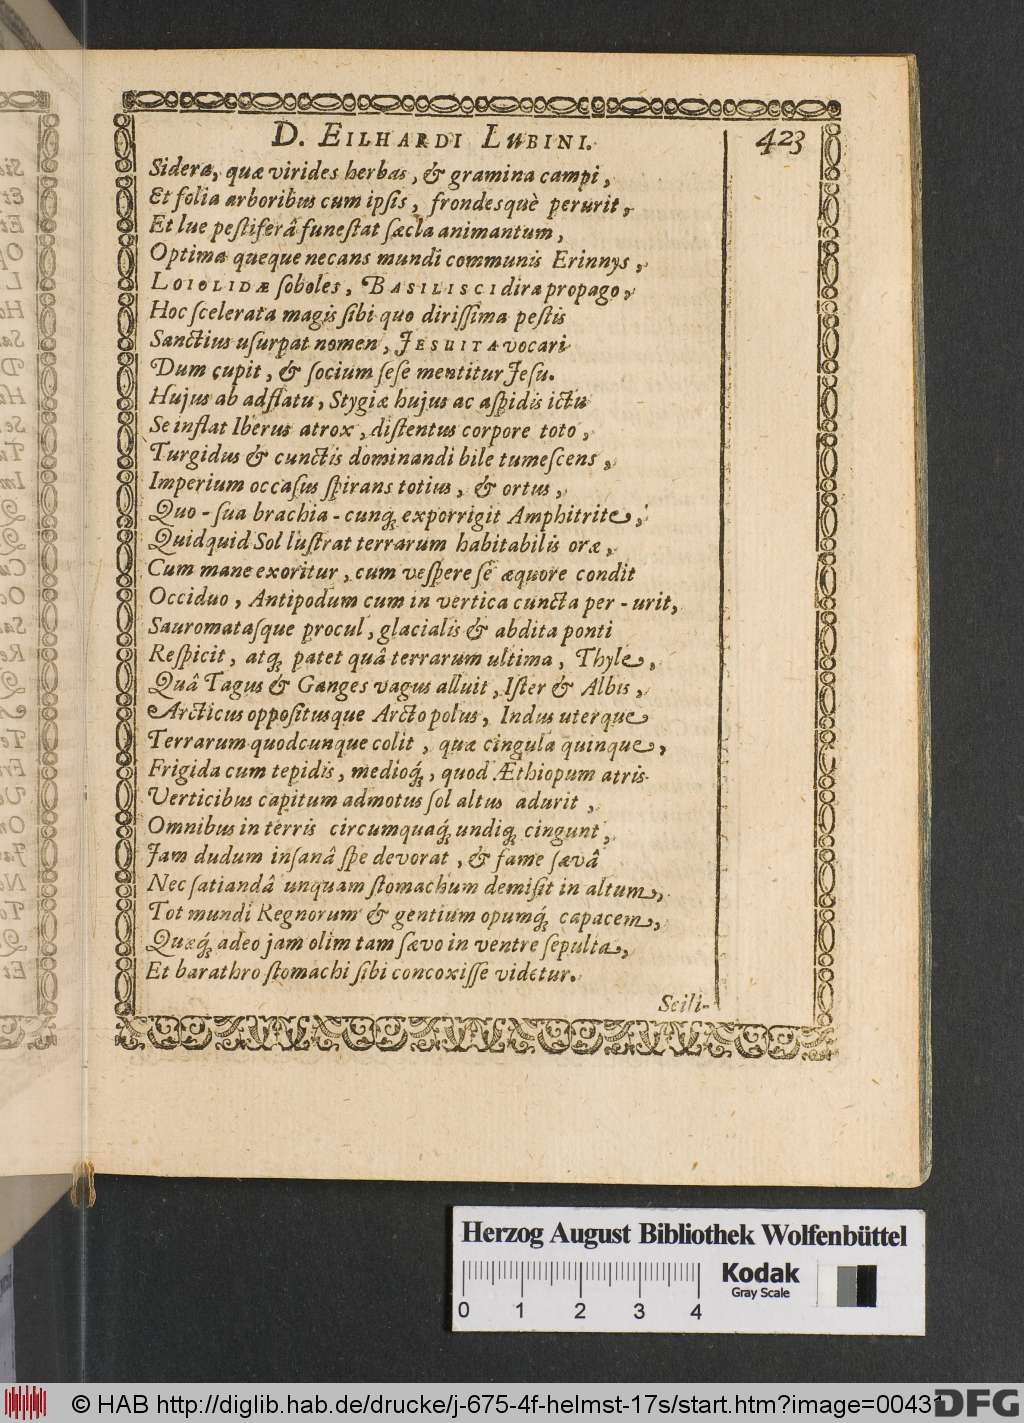 D. EILHARDI LUBINI. 423
Sidera, quæ virides herbas, & gramina campi,
Et folia arboribus cum ipsis, frondesquè perurit,
Et lue pestiferâ funestat sæcla animantum,
Optima queque necans mundi communis Erinnys,
LOIOLIDÆ soboles, BASILISCI dira propago,
Hoc scelerata magis sibi quo dirissima pestis
Sanctius usurpat nomen, JESUITA vocari
Dum cupit, & socium sese mentitur Jesu.
Hujus ab adflatu, Stygiæ hujus ac aspidis ictu
Se inflat Iberus atrox, distentus corpore toto,
Turgidus & cunctis dominandi bile tumescens,
Imperium occasus spirans totius, & ortus,
Quo-sua brachia-cunq; exporrigit Amphitrite,
Quidquid Sol lustrat terrarum habitabilis oræ,
Cum mane exoritur, cum vespere se æquore condit
Occiduo, Antipodum cum in vertica cuncta per-urit,
Sauromatasque procul, glacialis & abdita ponti
Respicit, atq; patet quâ terrarum ultima, Thyle,
Quâ Tagus & Ganges vagus alluit, Ister & Albis,
Arcticus oppositusque Arcto polus, Indus uterque
Terrarum quodcunque colit, quæ cingula quinque,
Frigida cum tepidis, medioq́;, quod Æthiopum atris
Verticibus capitum admotus sol altus adurit,
Omnibus in terris circumquaq́; undiq; cingunt,
Jam dudum insanâ spe devorat, & fame sævâ
Nec satiandâ unquam stomachum demisit in altum,
Tot mundi Regnorum & gentium opumq́; capacem,
Quæq́; adeo jam olim tam sævo in ventre sepulta,
Et barathro stomachi sibi concoxisse videtur.
Scili-
Herzog August Bibliothek Wolfenbüttel
Kodak
Gray Scale
0 1 2 3 4
© HAB http://diglib.hab.de/drucke/j-675-4f-helmst-17s/start.htm?image=00431
DFG